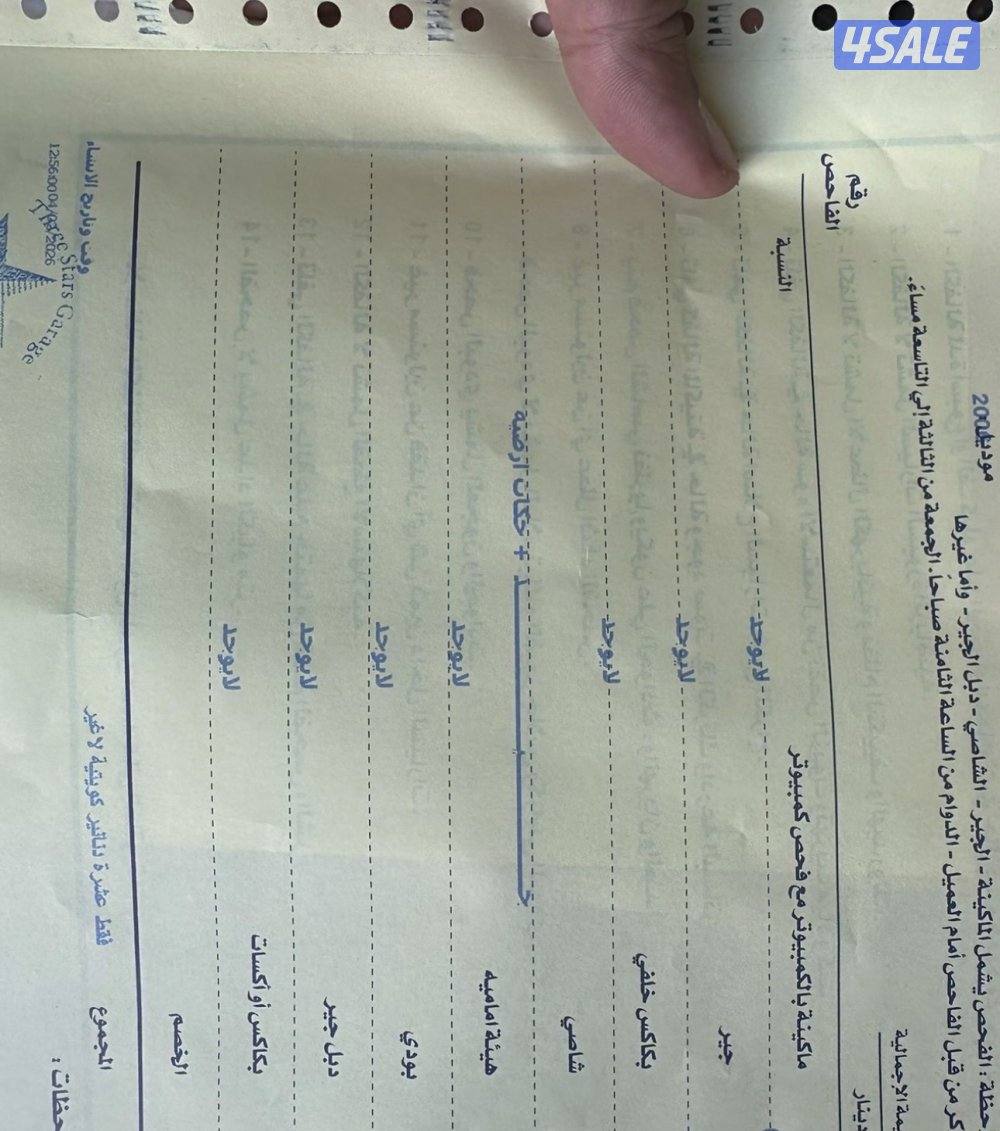 موديل
حظة : الفحص يشمل الماكينة - الجير - الشاصي - دبل الجير - وأما غيرها
كر من قبل الفاحص أمام العميل - الدوام من الساعة الثامنة صباحاً. الجمعة من الثالثة إلى التاسعة مساءً.
مة الإجمالية
دينار النسبة رقم الفاحص
ماكينة بالكمبيوتر مع فحص كمبيوتر لايوجد
جير لايوجد
بكاكس خلفي لايوجد
شاصي جـــــيـــــد + حكات ارضية
هيئة اماميه لايوجد
بودي لايوجد
دبل جير لايوجد
بكاكس أو أكسات لايوجد
الخصم
المجموع فقط عشرة دنانير كويتية لاغير وقت وتاريخ الانشاء
حظات :
Stars Garage
4SALE